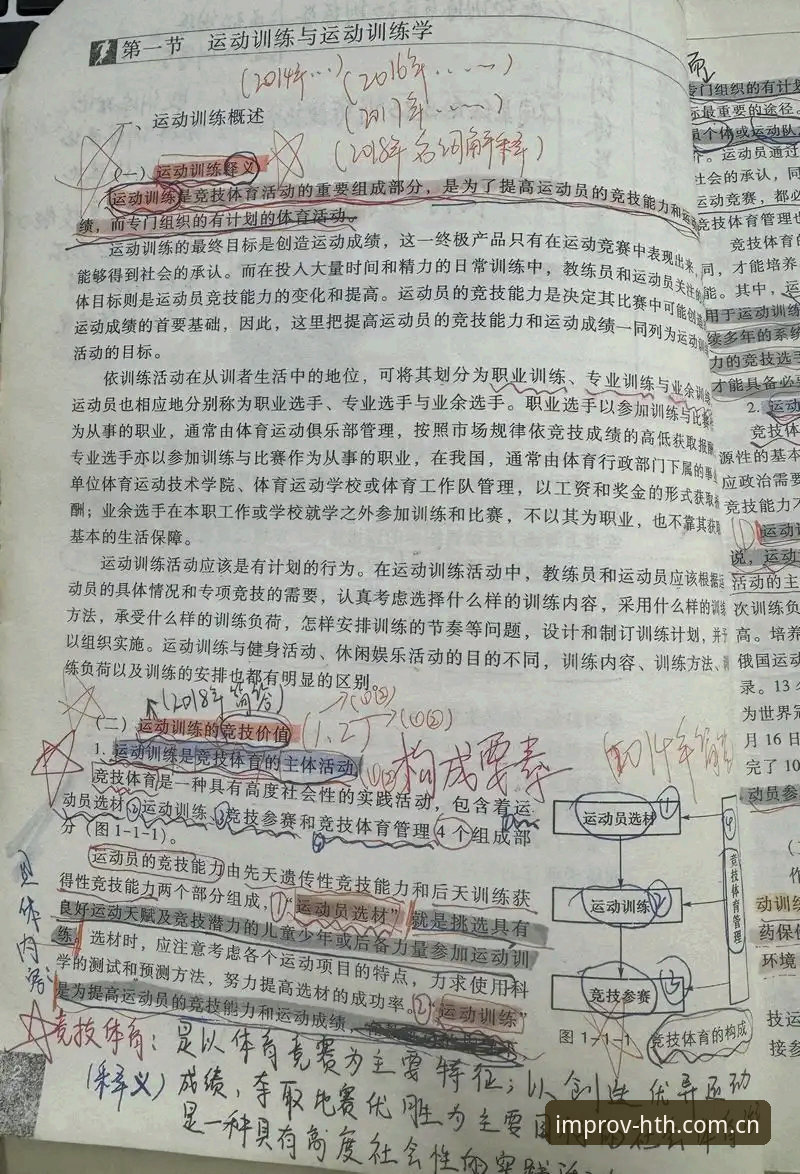 第一节 运动训练与运动训练学
(2014年…) (2016年……)
一、运动训练概述
(2017年……)
(2018年名词解释)
(一) 运动训练释义
运动训练是竞技体育活动的重要组成部分,是为了提高运动员的竞技能力和运动
绩,而专门组织的有计划的体育活动。
运动训练的最终目标是创造运动成绩,这一终极产品只有在运动竞赛中表现出来,
能够得到社会的承认。而在投入大量时间和精力的日常训练中,教练员和运动员关注的
体目标则是运动员竞技能力的变化和提高。运动员的竞技能力是决定其比赛中可能创造
运动成绩的首要基础,因此,这里把提高运动员的竞技能力和运动成绩一同列为运动训
活动的目标。
依训练活动在从训者生活中的地位,可将其划分为职业训练、专业训练与业余训练
运动员也相应地分别称为职业选手、专业选手与业余选手。职业选手以参加训练与比赛
为从事的职业,通常由体育运动俱乐部管理,按照市场规律依竞技成绩的高低获取报酬
专业选手亦以参加训练与比赛作为从事的职业,在我国,通常由体育行政部门下属的事
单位体育运动技术学院、体育运动学校或体育工作队管理,以工资和奖金的形式获取
酬;业余选手在本职工作或学校就学之外参加训练和比赛,不以其为职业,也不靠其获
基本的生活保障。
运动训练活动应该是有计划的行为。在运动训练活动中,教练员和运动员应该根据运
动员的具体情况和专项竞技的需要,认真考虑选择什么样的训练内容,采用什么样的训练
方法,承受什么样的训练负荷,怎样安排训练的节奏等问题,设计和制订训练计划,并予
以组织实施。运动训练与健身活动、休闲娱乐活动的目的不同,训练内容、训练方法、训
练负荷以及训练的安排也都有明显的区别。
(2018年简答)
(二) 运动训练的竞技价值
1. 运动训练是竞技体育的主体活动
构成要素
2014年简答
竞技体育是一种具有高度社会性的实践活动,包含着运
动员选材、运动训练、竞技参赛和竞技体育管理4个组成部
分(图1-1-1)。
运动员的竞技能力由先天遗传性竞技能力和后天训练获
得性竞技能力两个部分组成,①“运动员选材”就是挑选具有
良好运动天赋及竞技潜力的儿童少年或后备力量参加运动训
练。选材时,应注意考虑各个运动项目的特点,力求使用科
学的测试和预测方法,努力提高选材的成功率。②“运动训练”
是为提高运动员的竞技能力和运动成绩,
运动员选材
运动训练
竞技参赛
竞技体育管理
图1-1-1 竞技体育的构成
具体内容:
竞技体育:是以体育竞赛为主要特征;以创造优异运动
(释义)成绩,夺取比赛优胜为主要
是一种具有高度社会性的实践活
专门组织的有计划
标最重要的途径。
员个体或运动队
运动员通过
社会的承认,同
运动竞赛,都必
竞技体育管理也
竞技体育的
同,才能培养
能。其中,运
用于运动训练
续多年的系统
力的竞技选手
才能具备必要
2. 运动
竞技体
源性的基本
应政治需要
竞技能力不
运动训
说,运动
活动的主
次训练负
高。培养
俄国运动
录。13
为世界冠
月16日
完了10
动员参
作
动训练
药保健
环境
技运
接参
improv-hth.com.cn